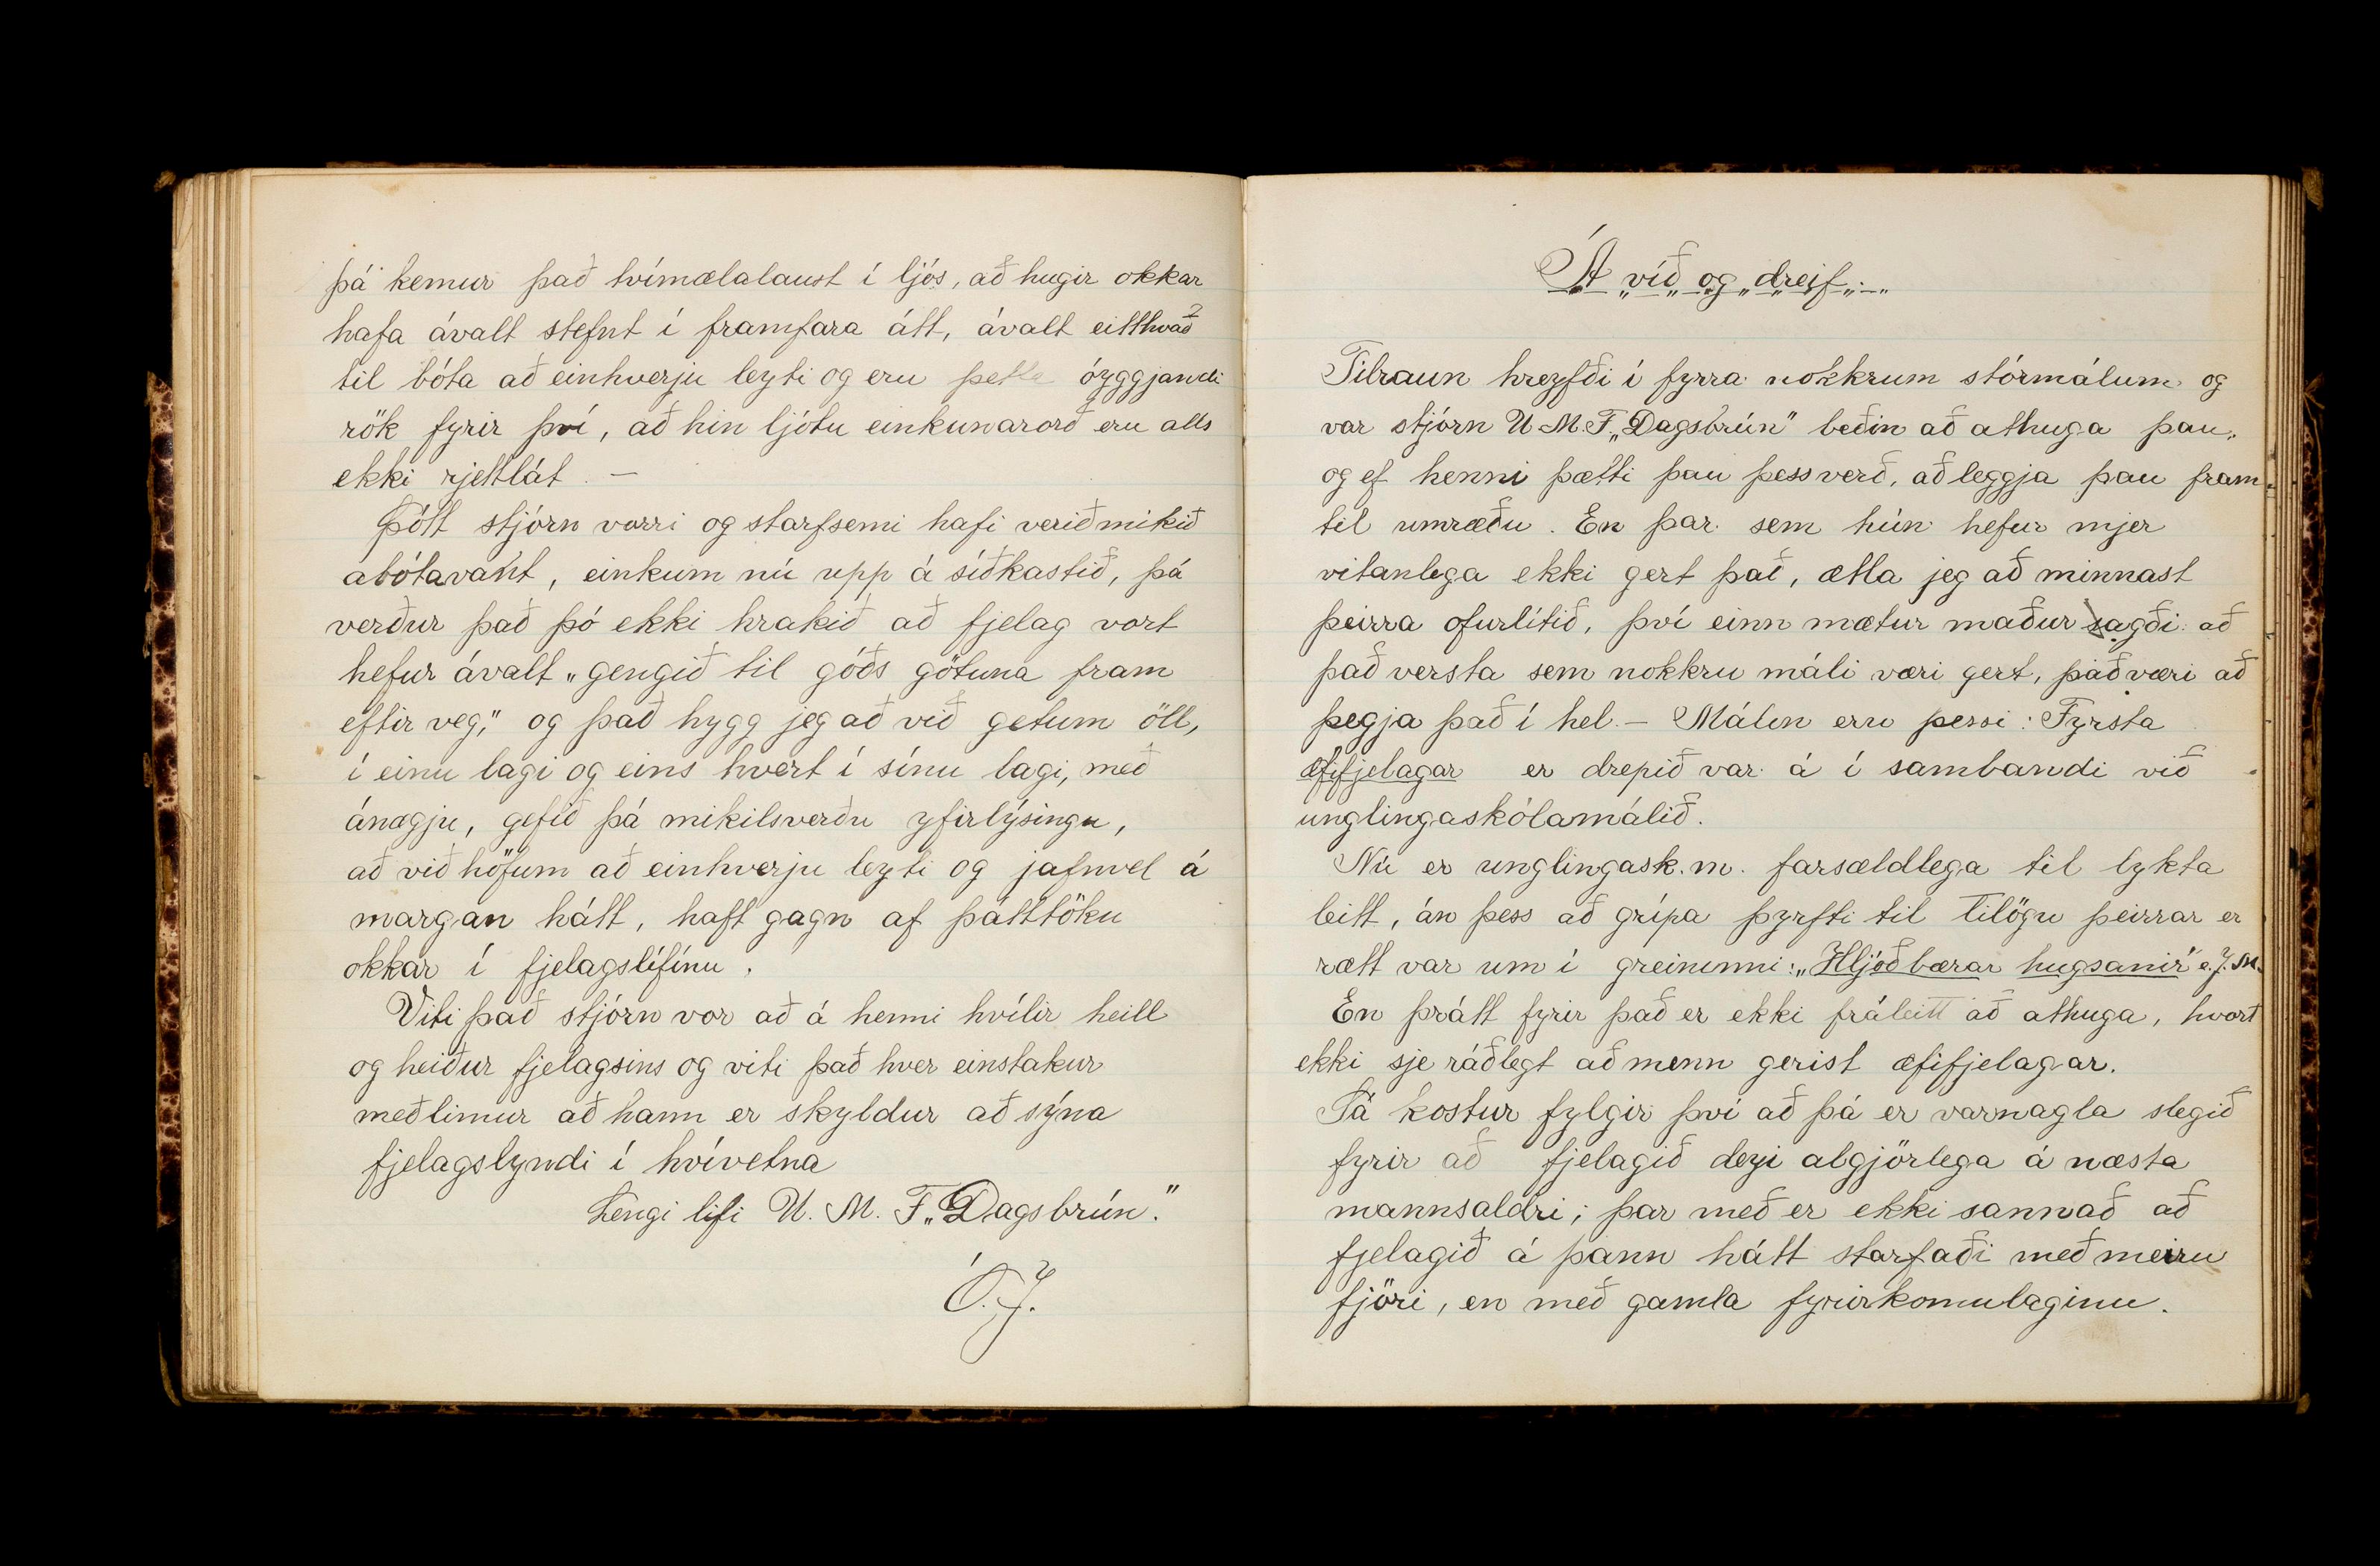 þá kemur það tvímælalaust í ljós, að hugir okkar
hafa ávalt stefnt í framfara átt, ávalt eitthvað
til bóta að einhverju leyti og eru þetta óyggjandi
rök fyrir því, að hin ljótu einkunarorð eru alls
ekki rjettlát. —
Þótt stjórn vorri og starfsemi hafi verið mikið
abótavant, einkum nú upp á síðkastið, þá
verður það þó ekki hrakið að fjelag vort
hefur ávalt „gengið til góðs götuna fram
eftir veg," og það hygg jeg að við getum öll,
í einu lagi og eins hvert í sínu lagi, með
ánægju, gefið þá mikilsverðu yfirlýsingu,
að við höfum að einhverju leyti og jafnvel á
margan hátt, haft gagn af þátttöku
okkar í fjelagslífinu.
Viti það stjórn vor að á henni hvílir heill
og heiður fjelagsins og viti það hver einstakur
meðlimur að hann er skyldur að sýna
fjelagslyndi í hvívetna
Lengi lifi U. M. F. „Dagsbrún."
Ó.J.
Á víð og dreif.
Tilraun hreyfði í fyrra nokkrum stórmálum og
var stjórn U.M.F. „Dagsbrún" beðin að athuga þau,
og ef henni þætti þau þess verð, að leggja þau fram
til umræðu. En þar sem hún hefur mjer
vitanlega ekki gert það, ætla jeg að minnast
þeirra ofurlítið, því einn mætur maður sagði að
það versta sem nokkru máli væri gert, það væri að
þegja það í hel. — Málin eru þessi: Fyrsta
æfifjelagar er drepið var á í sambandi við
unglingaskólamálið.
Nú er unglingask.m. farsældlega til lykta
leitt, án þess að grípa þyrfti til tilögu þeirrar er
rætt var um í greininni: „Hljóðbærar hugsanir" e. J. M.
En þrátt fyrir það er ekki fráleitt að athuga, hvort
ekki sje ráðlegt að menn gerist æfifjelagar.
Sá kostur fylgir því að þá er varnagla slegið
fyrir að fjelagið deyi algjörlega á næsta
mannsaldri; þar með er ekki sannað að
fjelagið á þann hátt starfaði með meiru
fjöri, en með gamla fyrirkomulaginu.